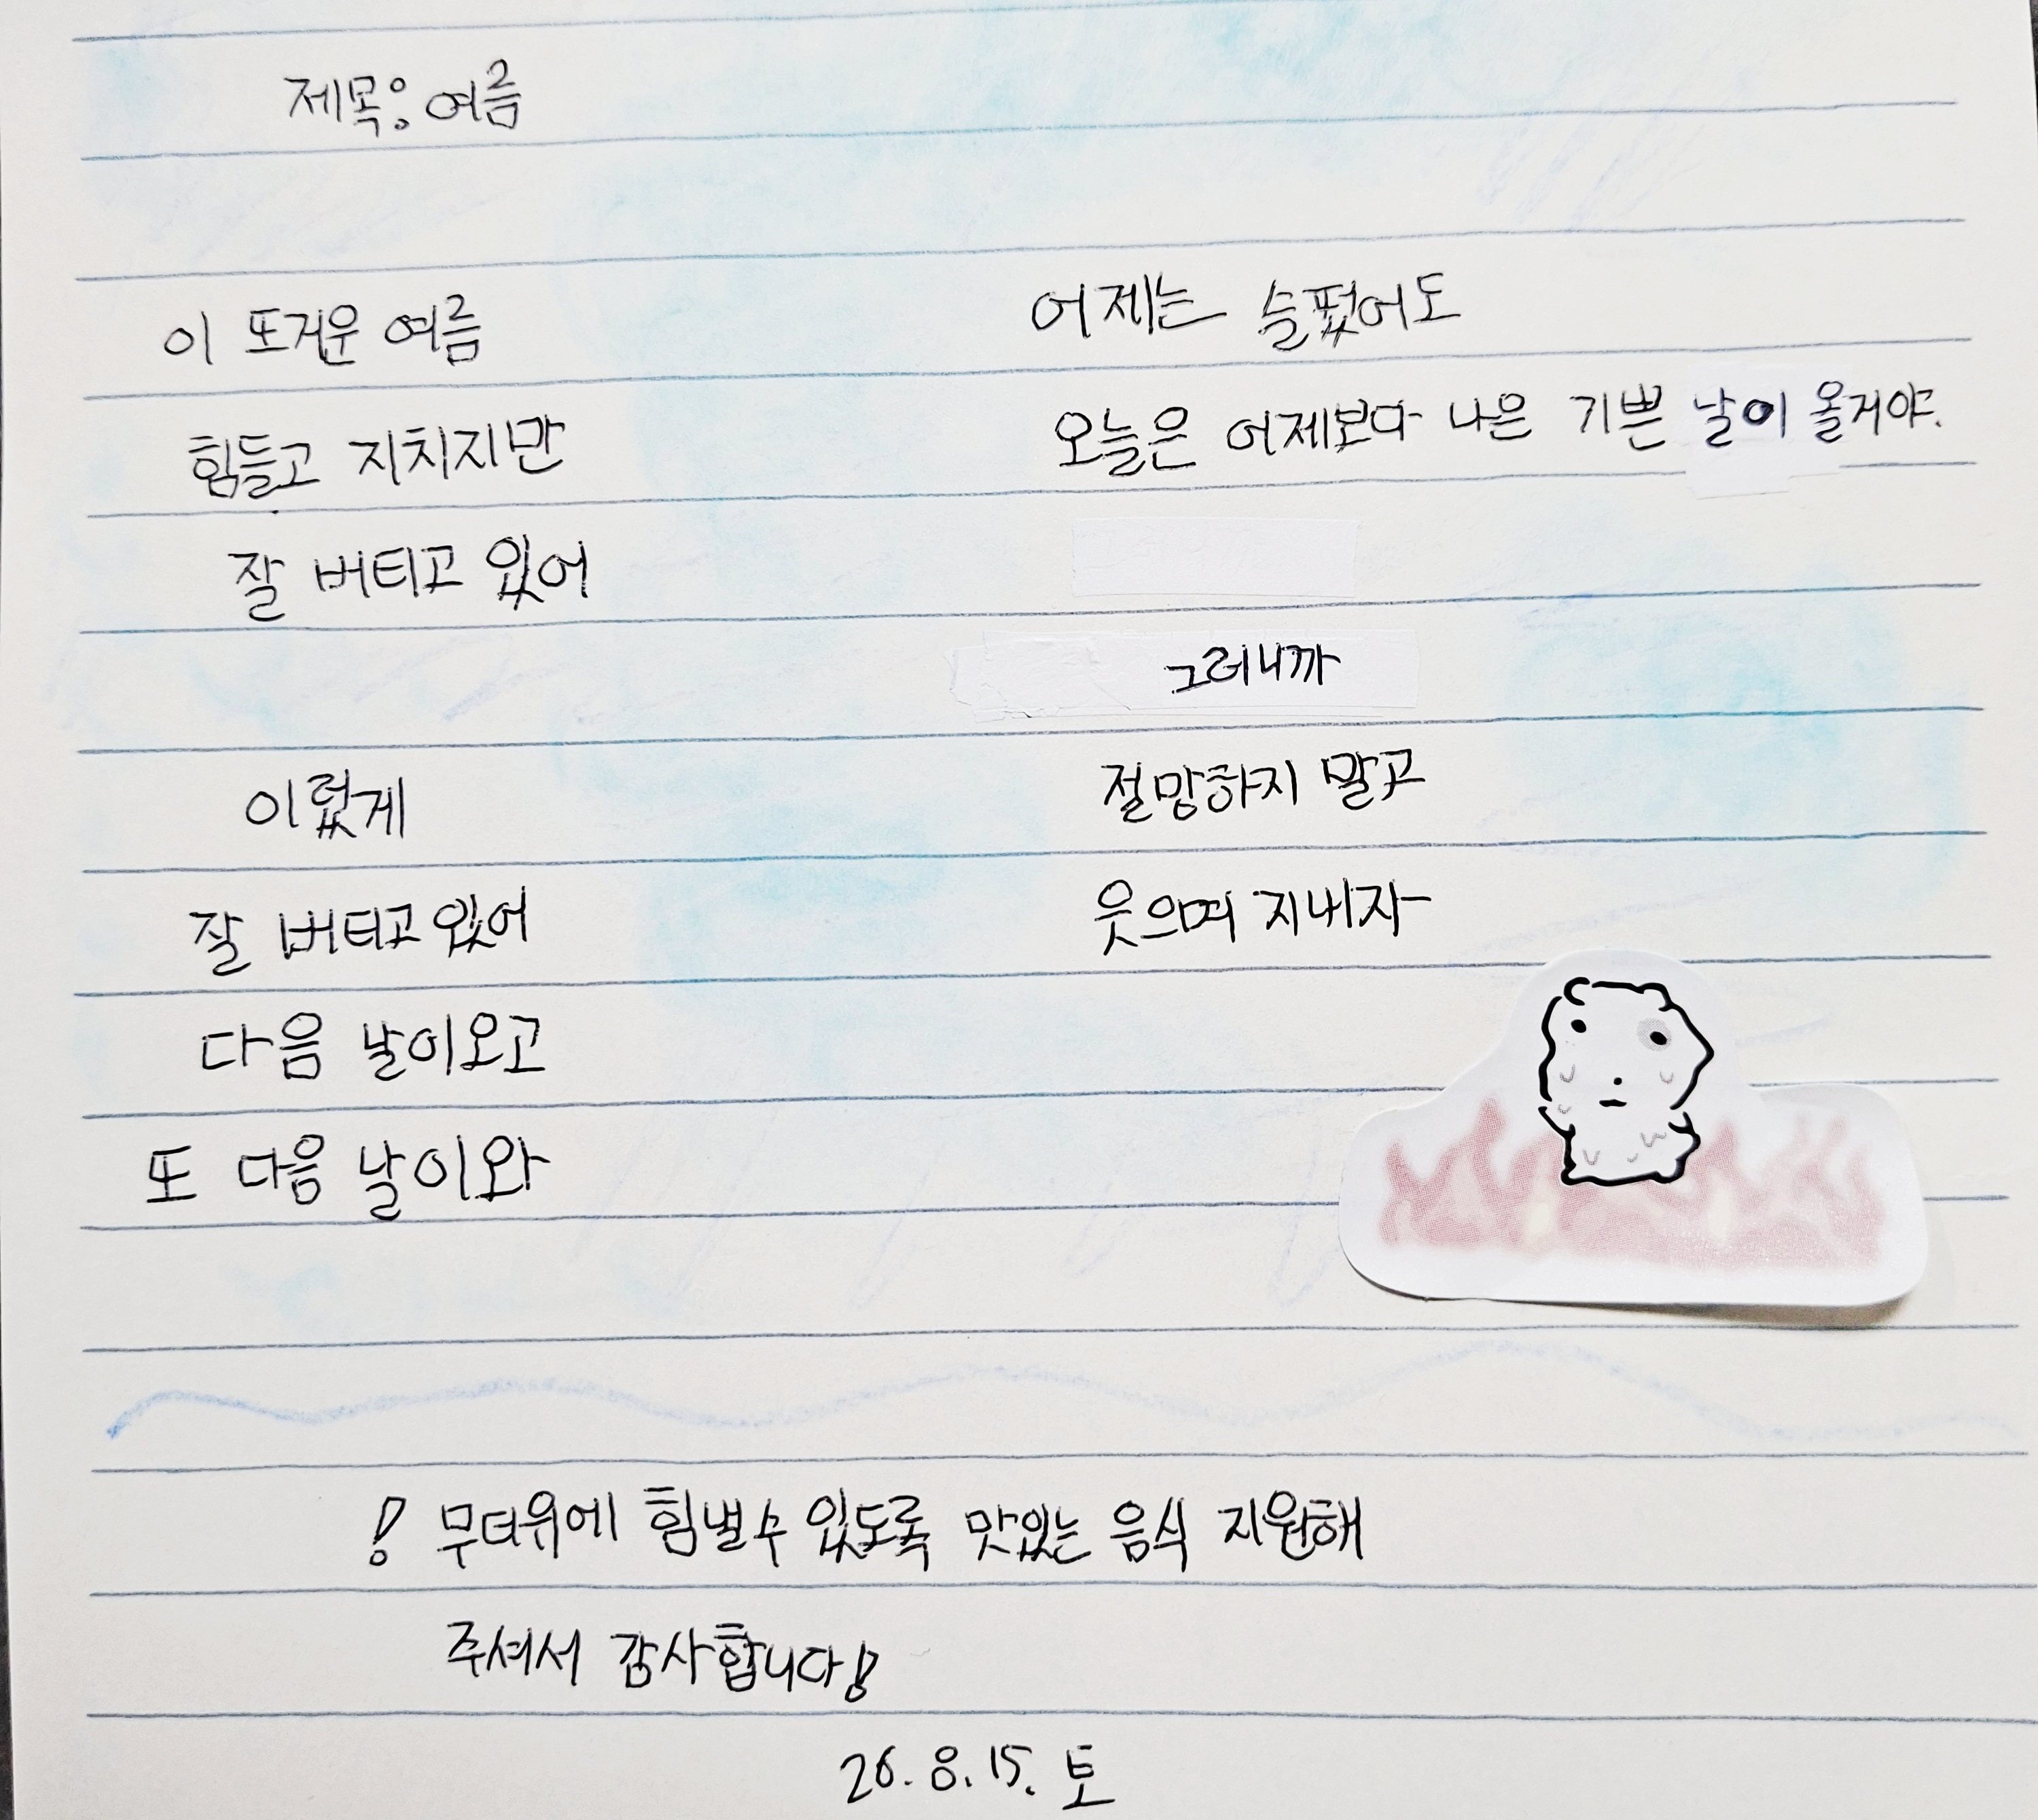 제목: 여름
이 또거운 여름
힘들고 지치지만
잘 버티고 있어
이렀게
잘 버티고 있어
다음 날이오고
또 다음 날이와
어제는 슬펐어도
오늘은 어제보다 나은 기쁜 날이 올거야.
그러니까
절망하지 말고
웃으며 지내자
! 무더위에 힘낼수 있도록 맛있는 음식 지원해
주셔서 감사합니다!
26.8.15. 토